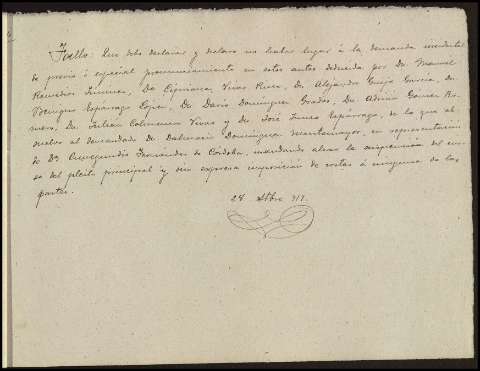 Fallo: Que debo declarar y declaro no haber lugar á la demanda incidental
de previo é especial pronunciamiento en estos autos deducida por Dn. Manuel
Remedios Jimenez, Dn. Cipriano Vivas Rico, Dn. Alejandro García, Dn.
Benigno Espárrago Lopez, Dn. Dario Dominguez Grados, Dn. Adrian Gomez Ro-
mero, Dn. Julian Colmenar Vivas y Dn. José Espárrago, de la que ab-
suelvo al demandado Dn. Dominguez en representación
de Da. Fernandez de Córdoba, mandando alzar la suspension del cur-
so del pleito principal y sin expresa imposición de costas á ninguna de las
partes.
28 917.